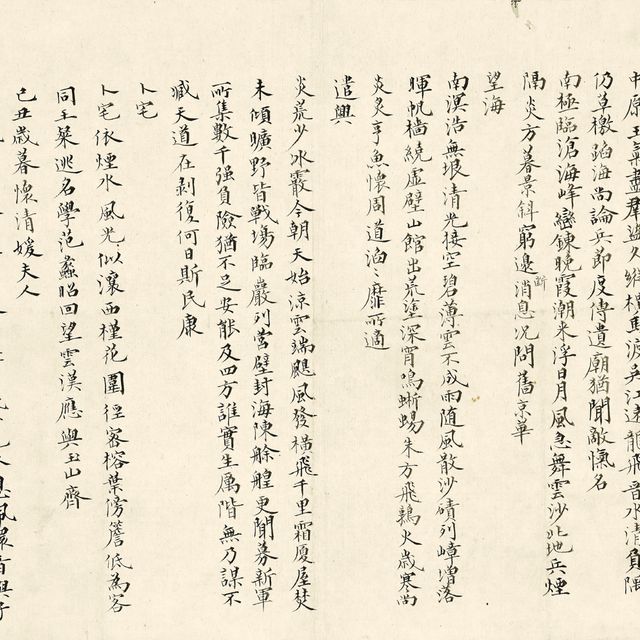 龍飛晉水清負隅
仍草檄蹈海尚論兵即度傳遺廟猶聞敵愾名
南極臨滄海峰巒鍊晚霞潮來浮日月風急舞雲沙北地兵煙
隅炎方暮景斜窮邊消息况問舊京華
斷
望海
南溟浩無垠清光接空碧薄雲不成雨随風散沙磧列嶂增落
暉帆檣繞虛壁山館出荒塗深宵鳴蜥蜴朱方飛鶉火歲寒尚
炎炙亨魚懷周道泊〻靡所適
遣興
炎荒少冰霰今朝天始涼雲端颶風發橫飛千里霜厦屋焚
未傾曠野皆戰場臨巖列營壁封海陳艅艎更聞募新軍
所集數千强負險猶不足安能及四方誰實生厲階無乃謀不
臧天道在剥復何日斯民康
卜宅
卜宅依煙水風光似瀼西槿花圍徑密榕葉傍簷低為客
同王粲逃名學范蠡昭回望雲漢應與玉山齊
己丑歲暮懷清媛夫人